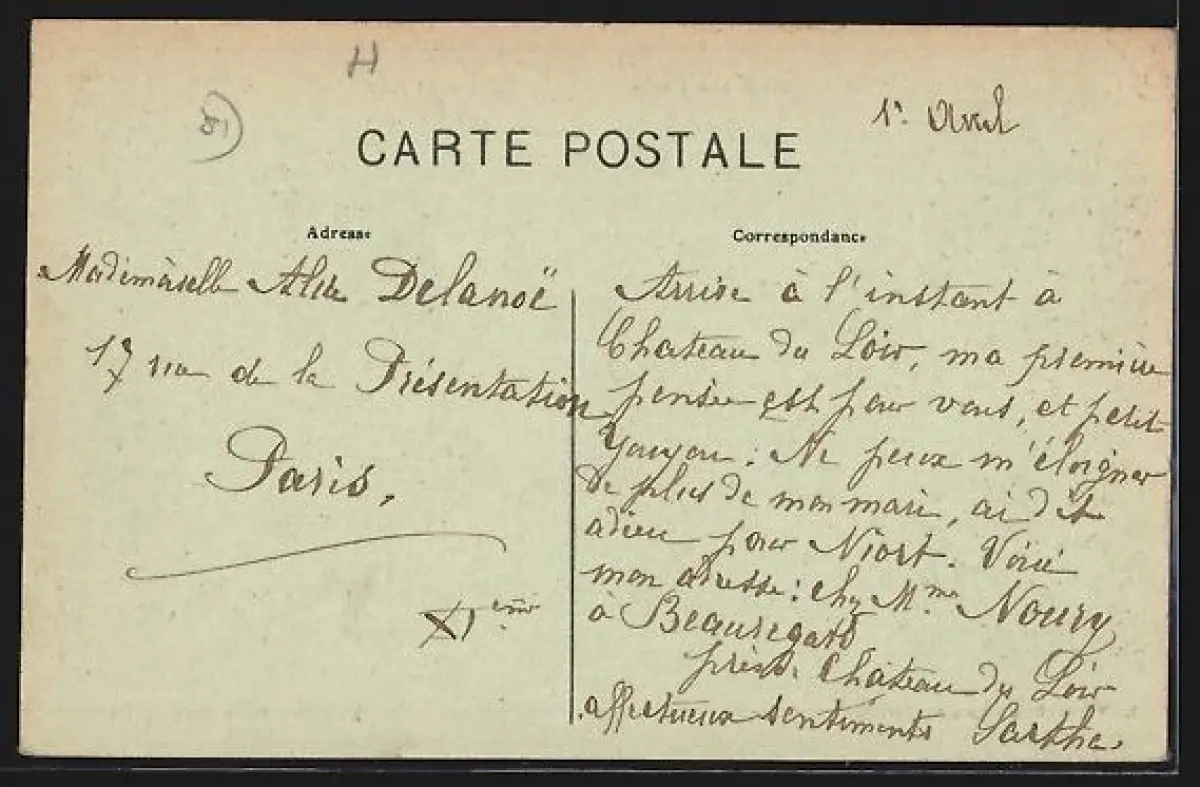 H
1er Avril
CARTE POSTALE
Adresse
Mademoiselle Alice Delanoë
17 rue de la Présentation
Paris,
XIeme
Correspondance
Arrive à l'instant à
Chateau du Loir, ma première
pensée est pour vous, et petit
: Ne peux m'éloigner
de plus de mon mari, ai dit
adieu pour Niort. Voici
mon adresse : chez Mme Noury
à Beauregard
près. Chateau du Loir
affectueux sentiments Sarthe.